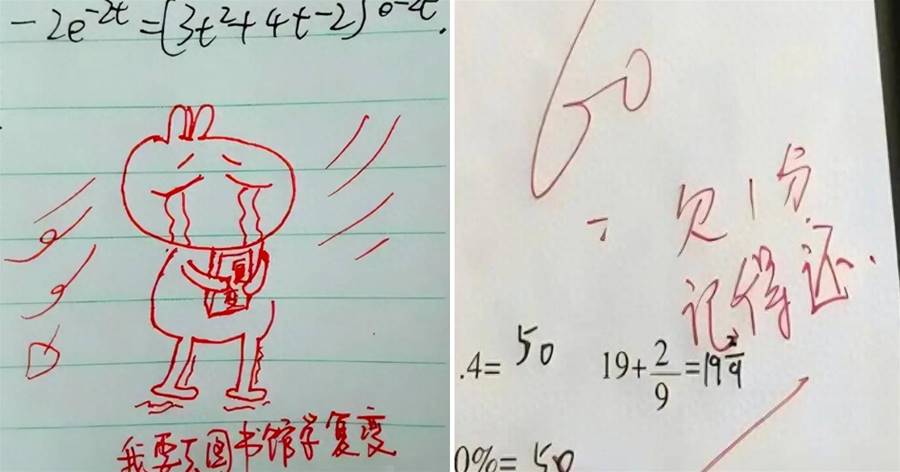 -2e^{-2t}=(3t²+4t-2)e^{-2t}.
复
变
我要去图书馆学复变
60
欠1分
记得还.
.4=50
19+\frac{2}{9}=19\frac{2}{9}
0%=50